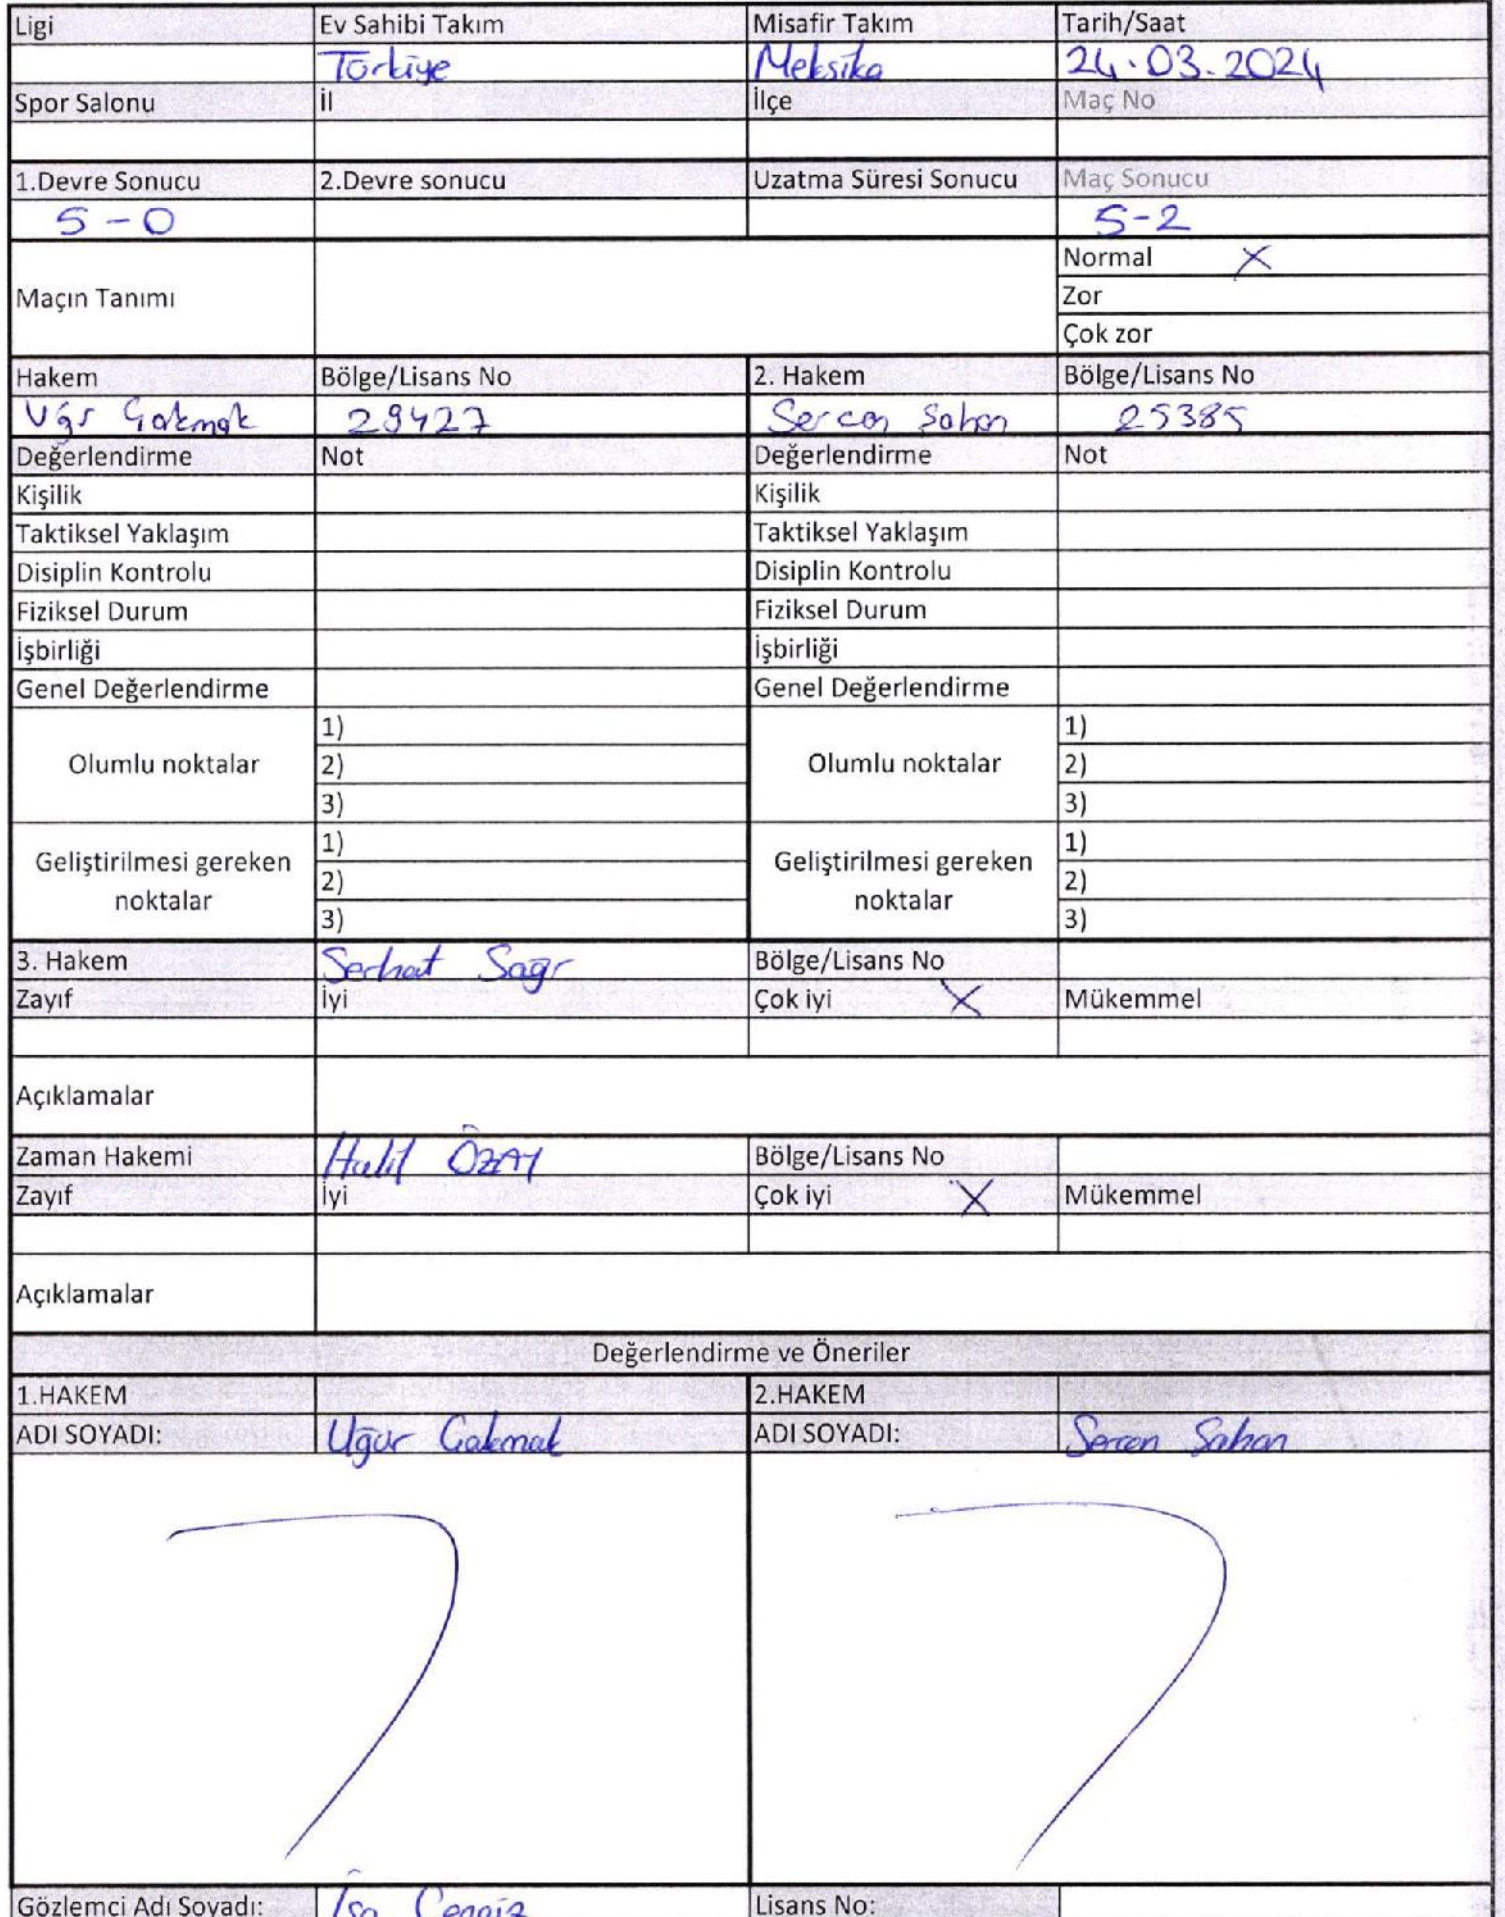 Ligi Ev Sahibi Takım Misafir Takım Tarih/Saat
Türkiye Meksika 24.03.2024
Spor Salonu İl İlçe Maç No
1.Devre Sonucu 2.Devre sonucu Uzatma Süresi Sonucu Maç Sonucu
5-0 5-2
Normal X
Maçın Tanımı Zor
Çok zor
Hakem Bölge/Lisans No 2. Hakem Bölge/Lisans No
Uğr Çakmak 29427 Sercan Şahan 25385
Değerlendirme Not Değerlendirme Not
Kişilik Kişilik
Taktiksel Yaklaşım Taktiksel Yaklaşım
Disiplin Kontrolu Disiplin Kontrolu
Fiziksel Durum Fiziksel Durum
İşbirliği İşbirliği
Genel Değerlendirme Genel Değerlendirme
1) 1)
Olumlu noktalar 2) Olumlu noktalar 2)
3) 3)
1) 1)
Geliştirilmesi gereken noktalar 2) Geliştirilmesi gereken noktalar 2)
3) 3)
3. Hakem Serhat Sağır Bölge/Lisans No
Zayıf İyi Çok iyi X Mükemmel
Açıklamalar
Zaman Hakemi Halil ÖZAY Bölge/Lisans No
Zayıf İyi Çok iyi X Mükemmel
Açıklamalar
Değerlendirme ve Öneriler
1.HAKEM 2.HAKEM
ADI SOYADI: Uğur Çakmak ADI SOYADI: Sercan Şahan
Gözlemci Adı Soyadı: İsa Cengiz Lisans No: